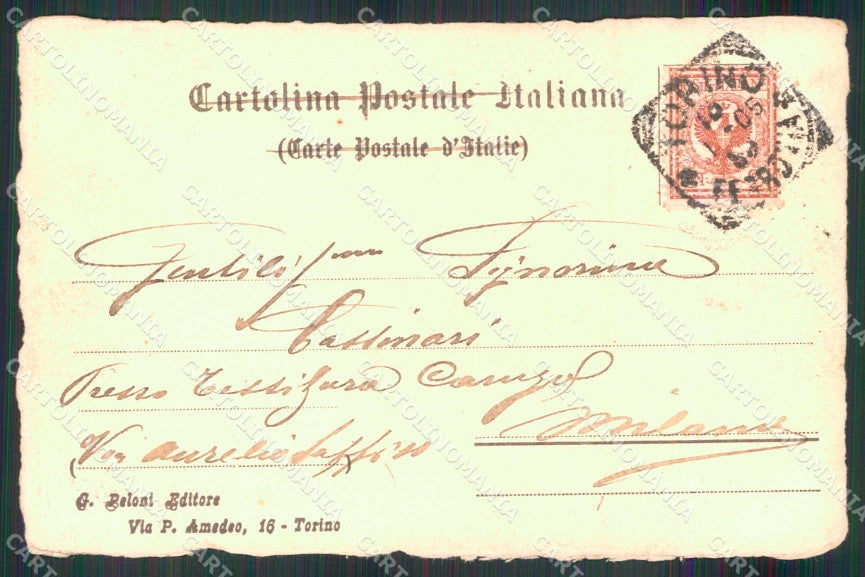 Cartolina Postale Italiana
(Carte Postale d'Italie)
TORINO
FERROVIA
Gentilissma Signorina
Cassinari
Presso Tessitura
Milano
Via Aurelio Saffi
G. Beloni Editore
Via P. Amedeo, 16 - Torino
CARTOLINOMANIA